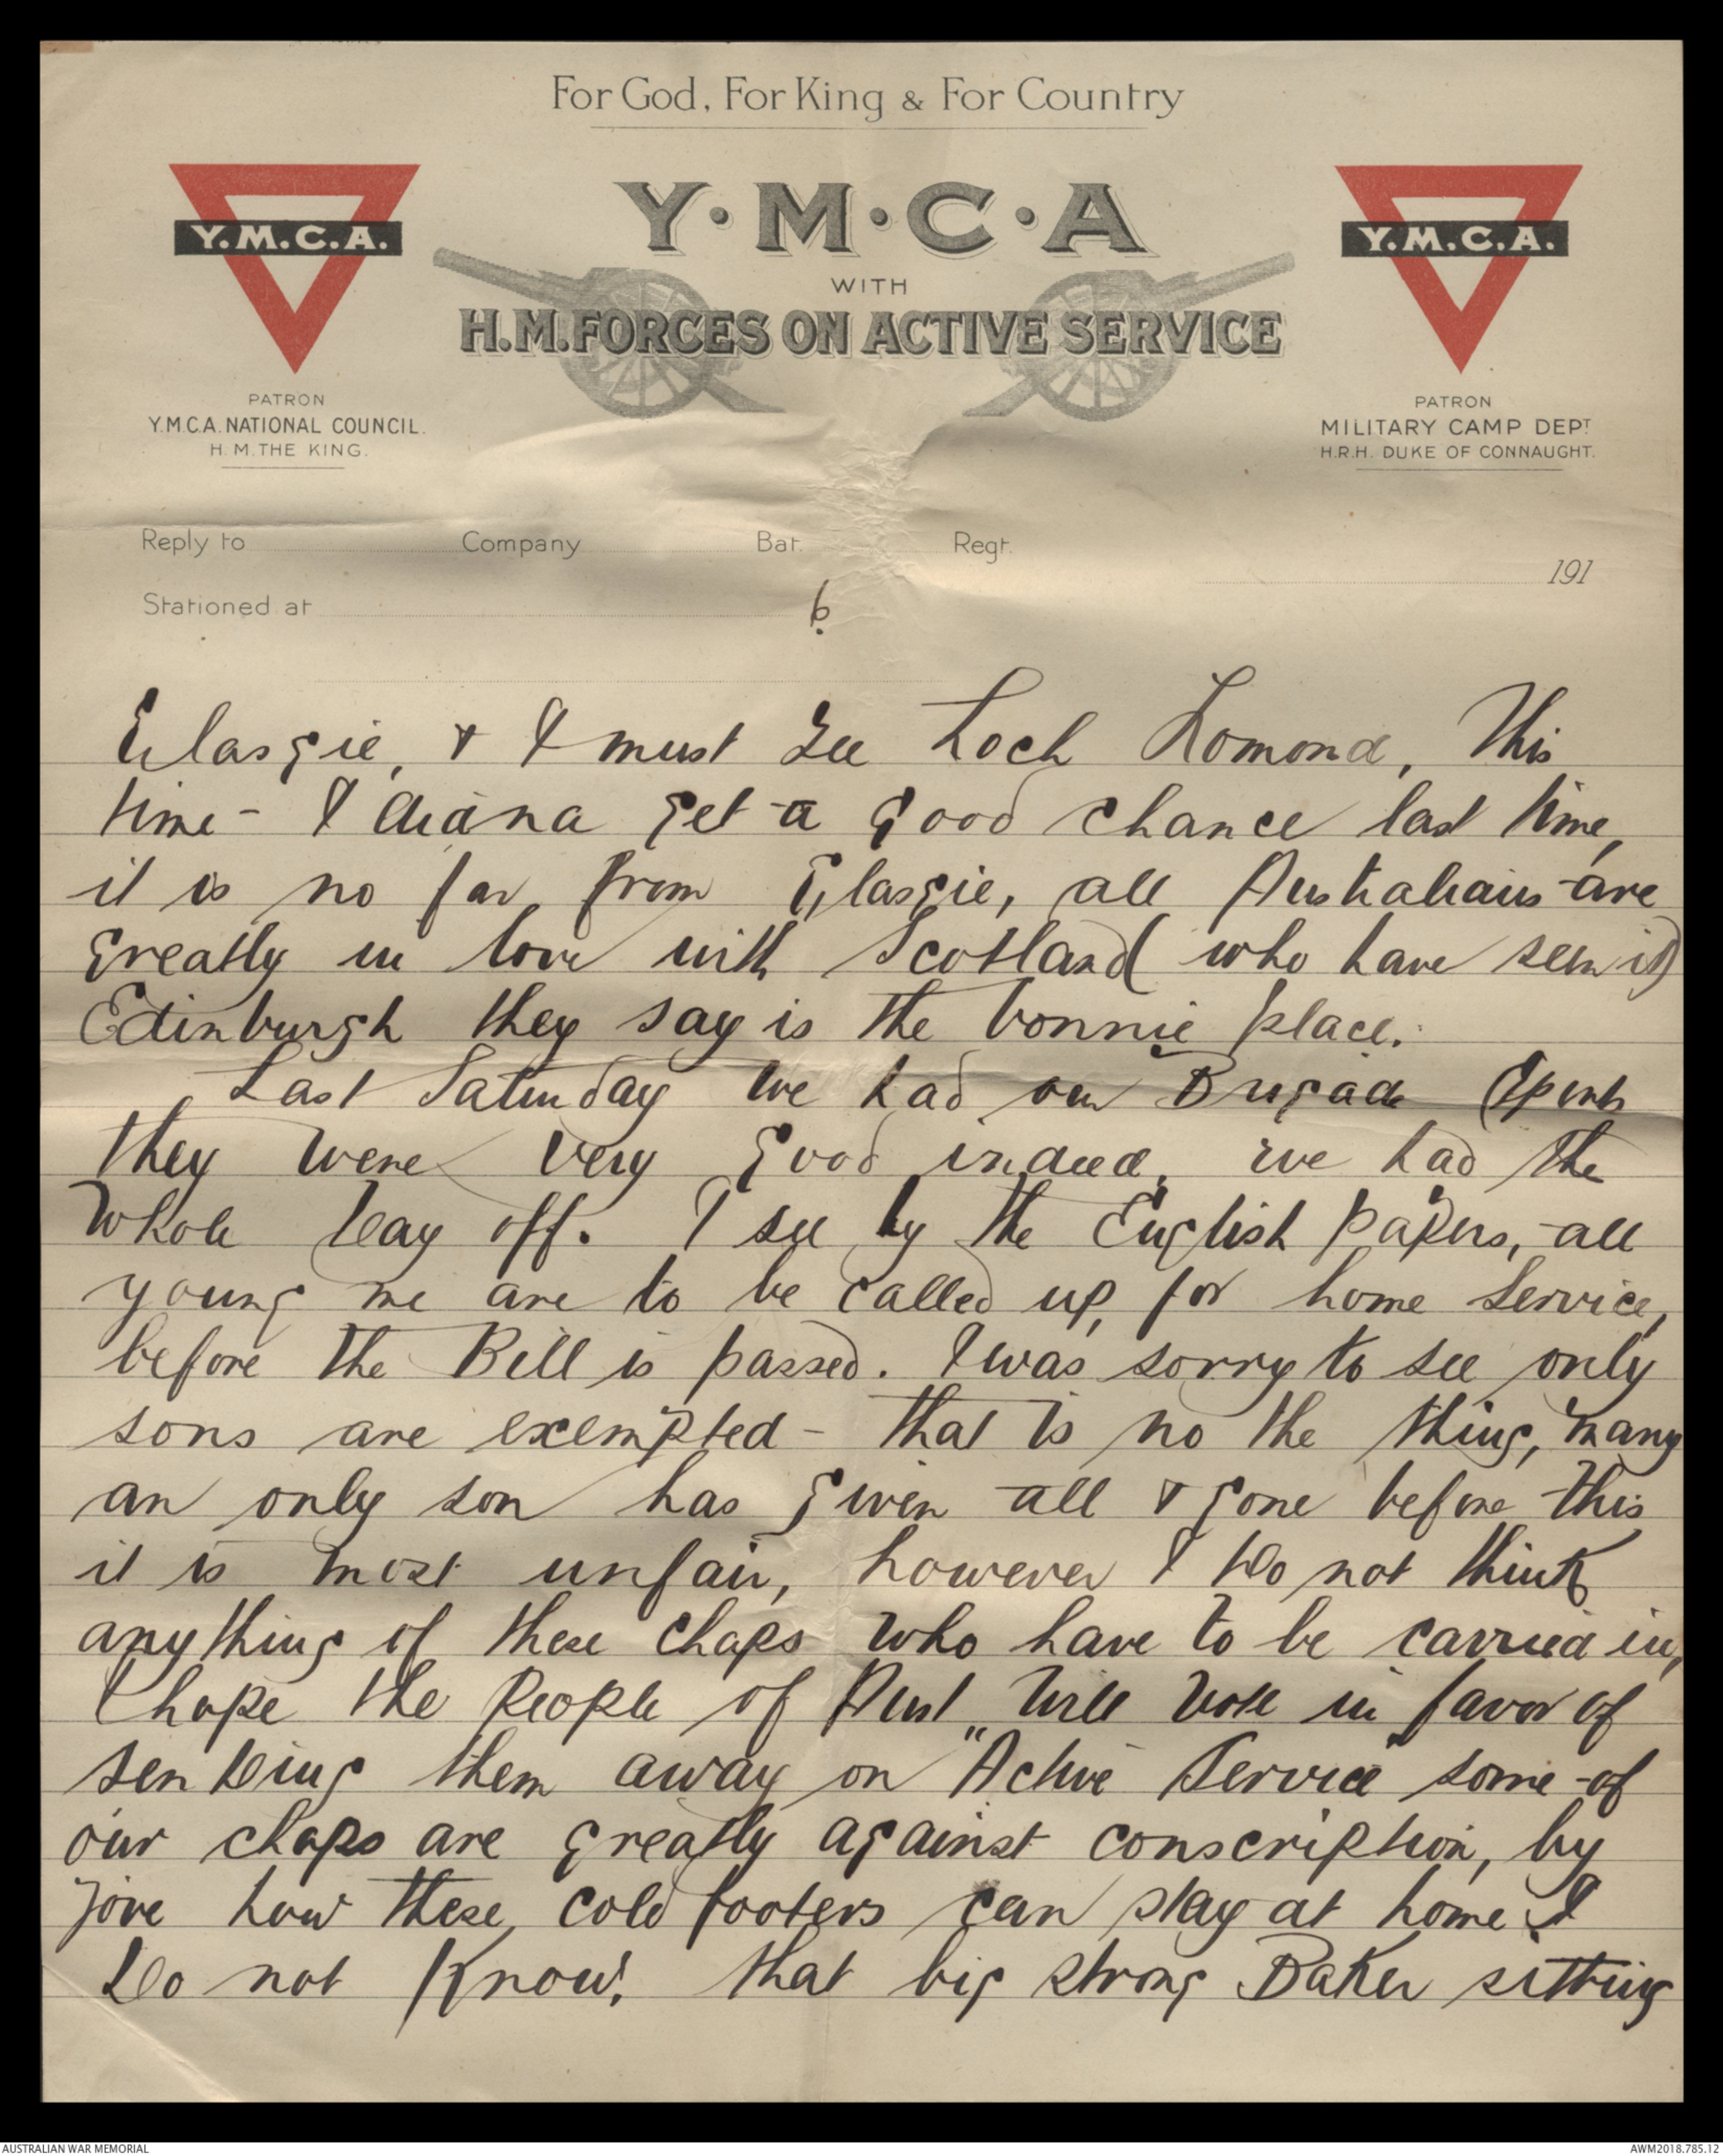 For God, For King & For Country
Y.M.C.A.
Y·M·C·A
Y.M.C.A.
WITH
H.M. FORCES ON ACTIVE SERVICE
PATRON
Y.M.C.A. NATIONAL COUNCIL.
H.M. THE KING.
PATRON
MILITARY CAMP DEPT
H.R.H. DUKE OF CONNAUGHT.
Reply to Company Bat. Regt.
191
Stationed at
6.
Glasgie, & I must see Loch Lomond, This
time - I didna get a good chance last time,
it is no far from Glasgie, all Australians are
greatly in love with Scotland (who have seen it)
Edinburgh they say is the bonnie place.
Last Saturday we had our Brigade Sports
they were very good indeed, we had the
whole day off. I see by the English papers, all
young me are to be called up, for home service,
before the Bill is passed. I was sorry to see only
sons are exempted - that is no the thing, many
an only son has given all & gone before this
it is most unfair, however I do not think
anything of these chaps who have to be carried in,
I hope the people of Aust will vote in favor of
sending them away on "Active Service some of
our chaps are greatly against conscription, by
jove how these cold footers can stay at home I
do not know! that big strong Baker sitting
AUSTRALIAN WAR MEMORIAL
AWM2018.785.12